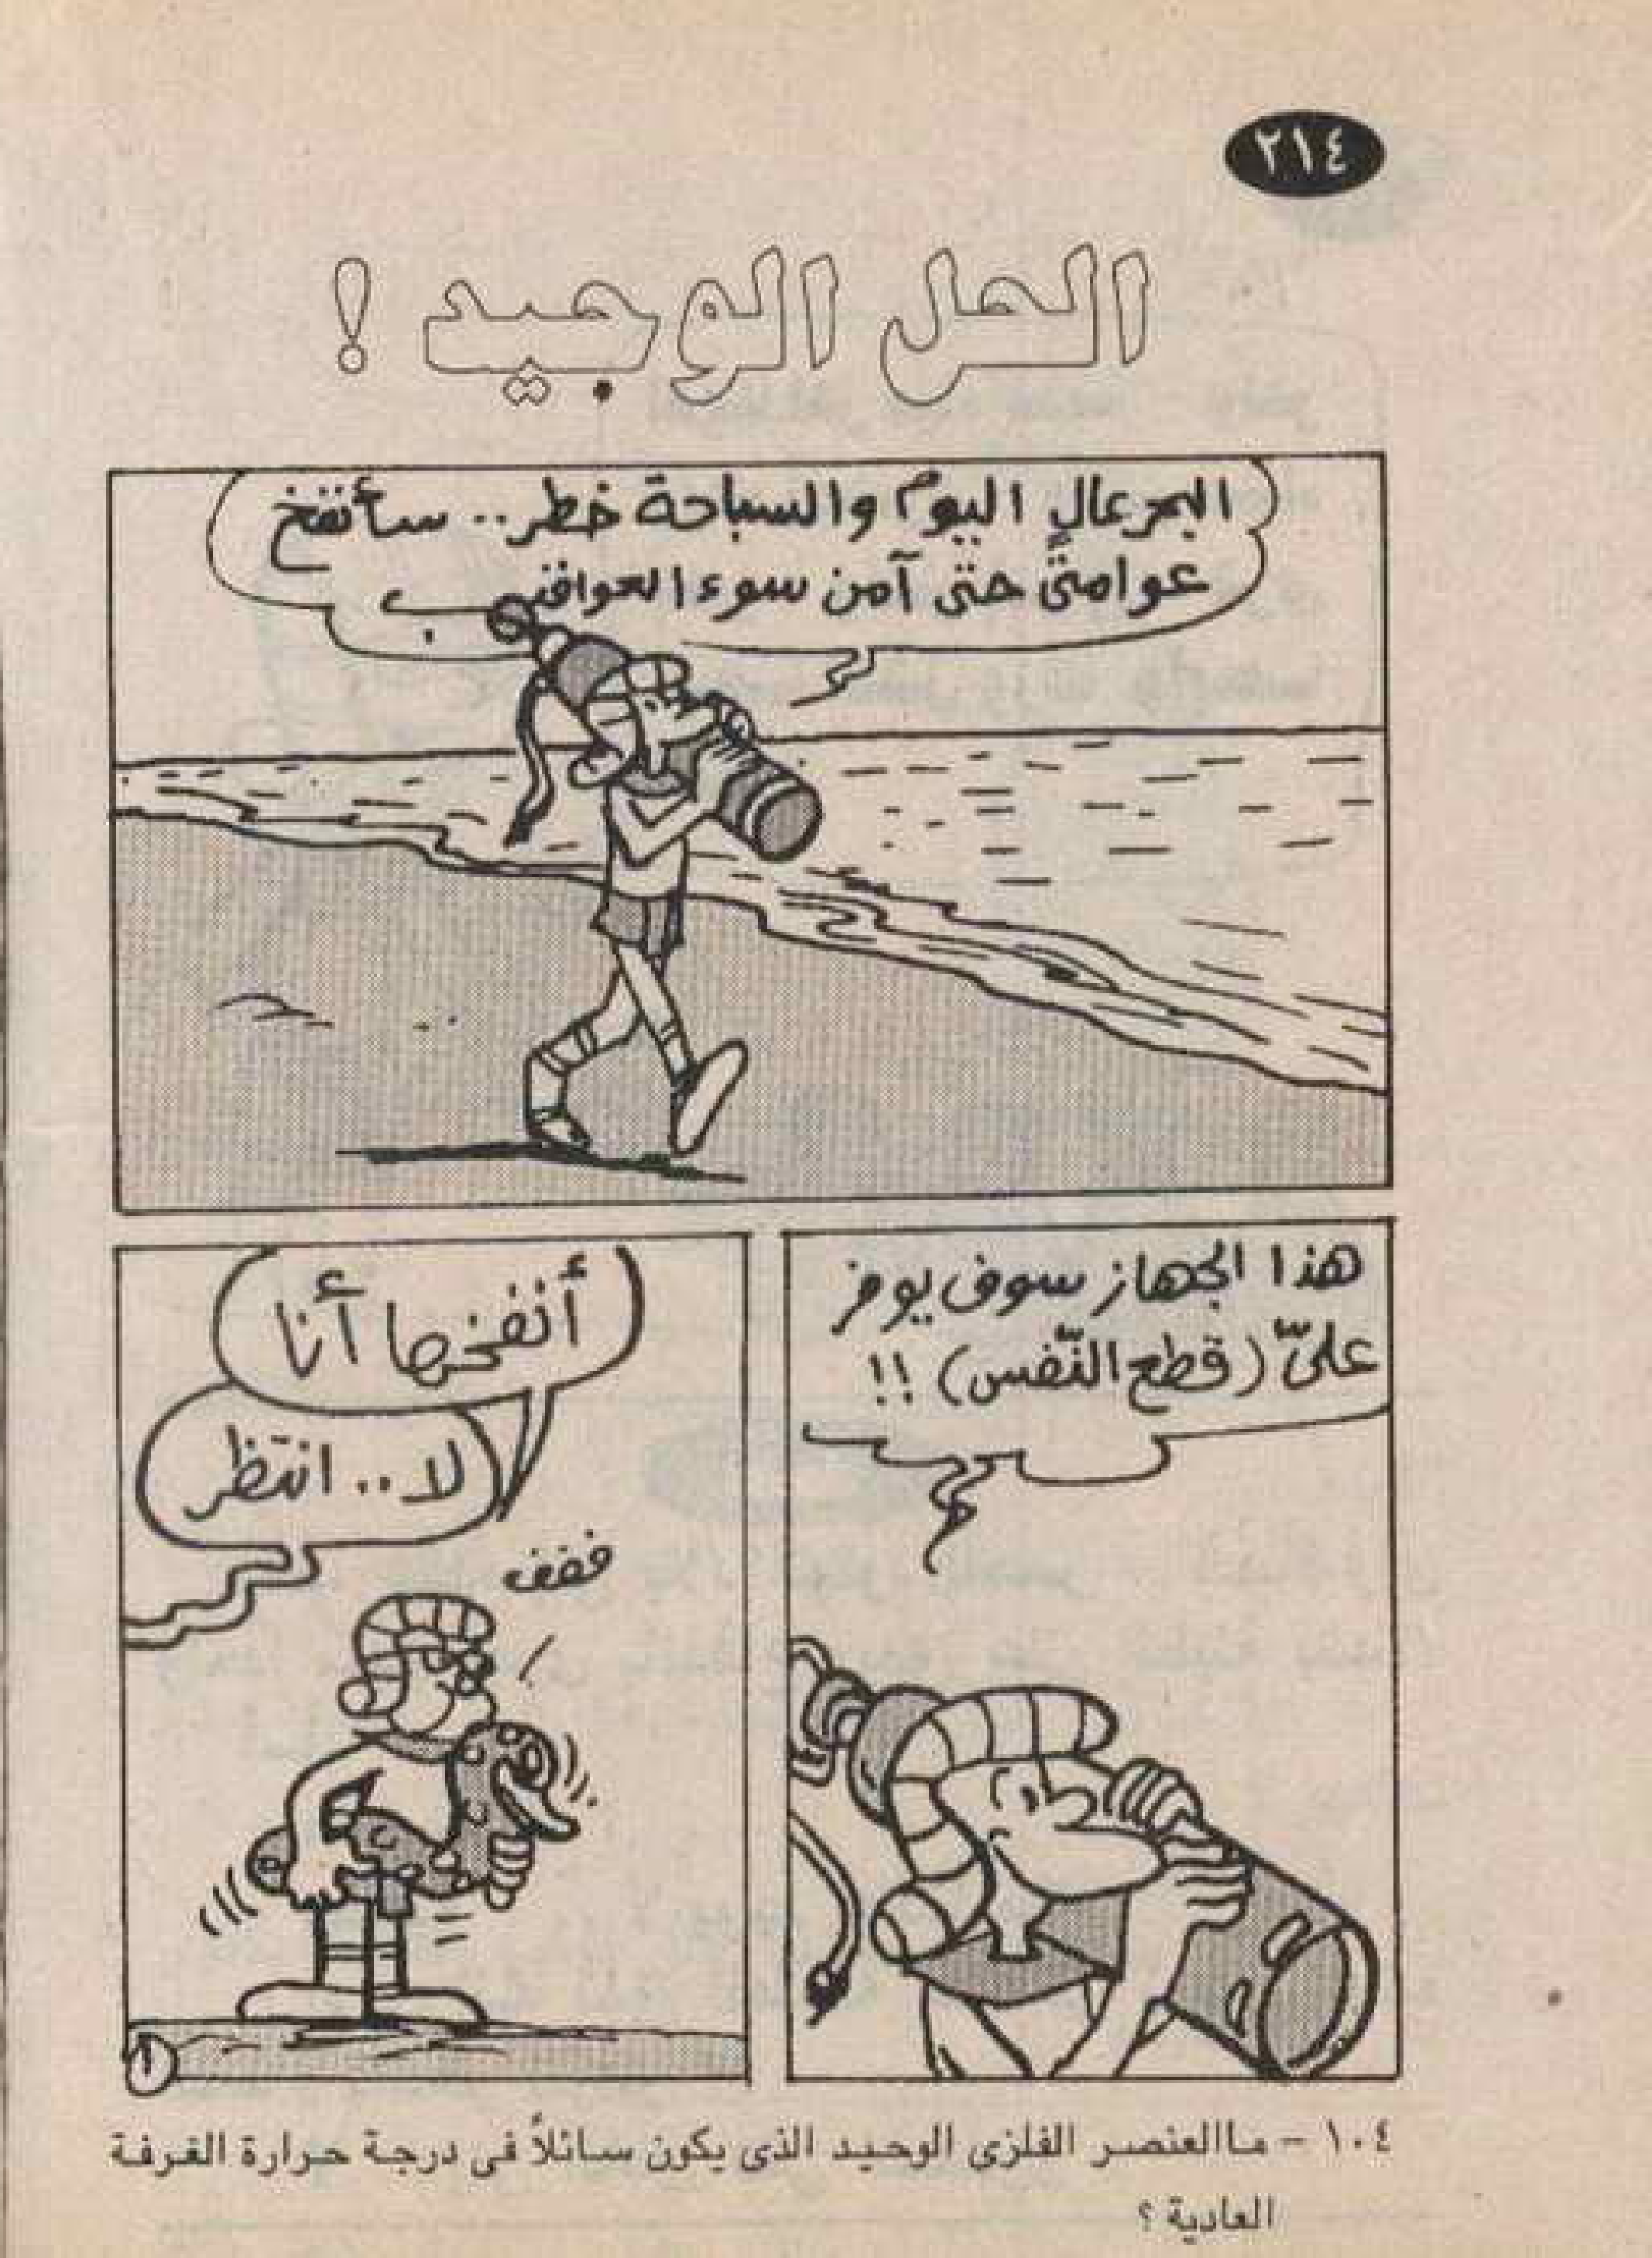 ٢١٤
الحل الوجيد !
البحر عالٍ اليوم والسباحة خطر .. سأنفخ
عوامتى حتى آمن سوء العواقب
هذا الجهاز سوف يوفر
علىّ (قطع النّفس) !!
أنفخها أنا
لا .. انتظر
ففف
١
١٠٤ - ما العنصر الفلزى الوحيد الذى يكون سائلاً فى درجة حرارة الغرفة
العادية ؟